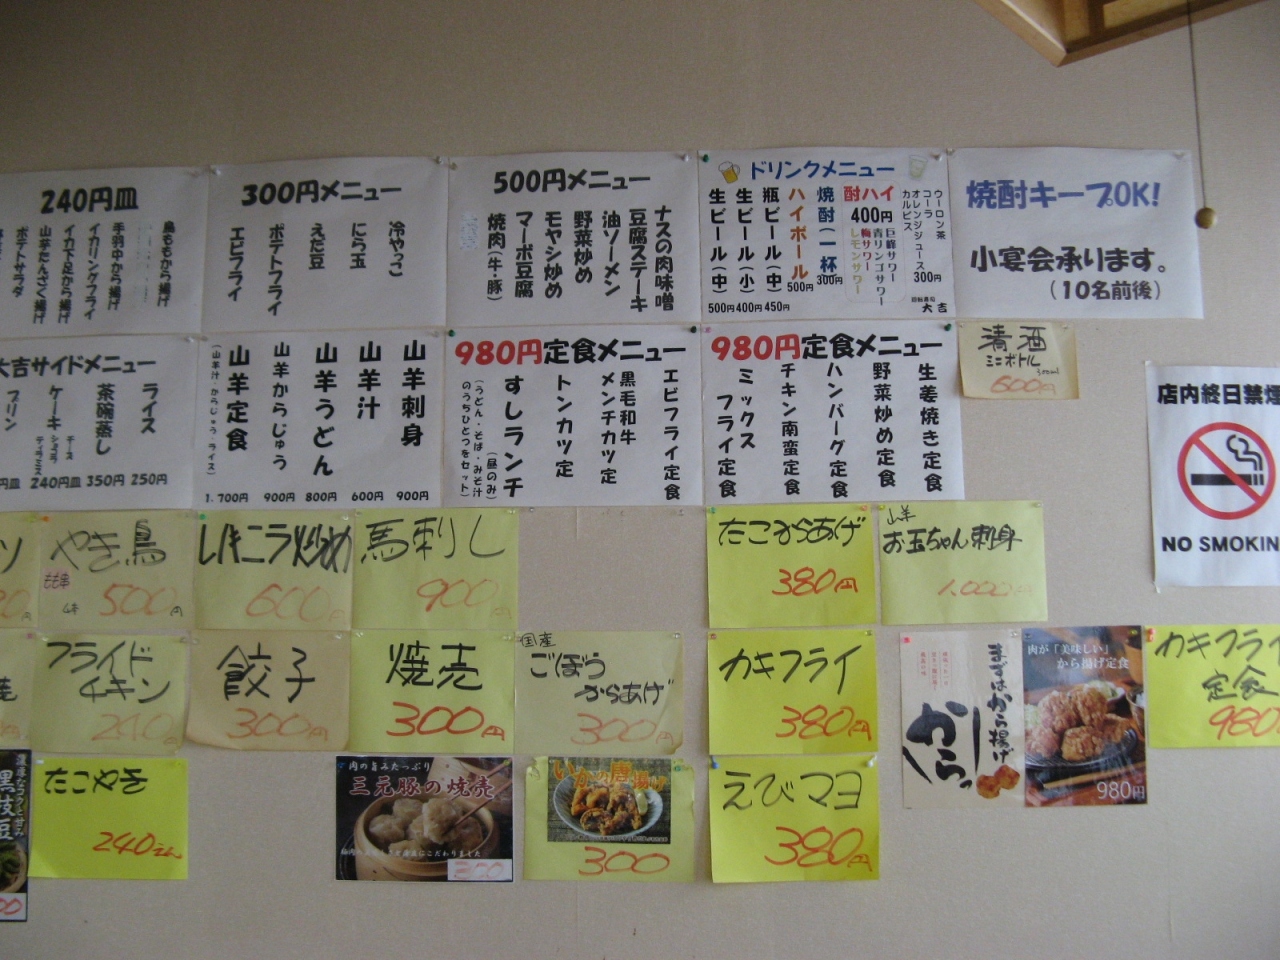 240円皿
鳥ももから揚げ
手羽中から揚げ
イカリングフライ
イカ下足から揚げ
山芋たんざく揚げ
ポテトサラダ
300円メニュー
冷やっこ
にら玉
えだ豆
ポテトフライ
エビフライ
500円メニュー
ナスの肉味噌
豆腐ステーキ
油ソーメン
野菜炒め
モヤシ炒め
マーボ豆腐
焼肉(牛・豚)
ドリンクメニュー
ウーロン茶
コーラ
オレンジジュース
カルピス
300円
酎ハイ
400円
巨峰サワー
青リンゴサワー
梅サワー
レモンサワー
焼酎(一杯)
300円
ハイボール
500円
瓶ビール(中)
450円
生ビール(小)
400円
生ビール(中)
500円
大吉
焼酎キープOK!
小宴会承ります。
(10名前後)
大吉サイドメニュー
ライス
250円
茶碗蒸し
350円
ケーキ
チーズ
ショコラ
ティラミス
240円皿
プリン
円皿
山羊刺身
900円
山羊汁
600円
山羊うどん
800円
山羊からじゅう
900円
山羊定食
(山羊汁・からじゅう・ライス)
1.700円
980円定食メニュー
エビフライ定食
黒毛和牛
メンチカツ定
トンカツ定
すしランチ
(昼のみ)
(うどん・そば・みそ汁
のうちひとつをセット)
980円定食メニュー
生姜焼き定食
野菜炒め定食
ハンバーグ定食
チキン南蛮定食
ミックス
フライ定食
清酒
ミニボトル
600円
店内終日禁煙
NO SMOKIN
やき鳥
もも串
500円
レバニラ炒め
600円
馬刺し
900
たこからあげ
380円
山羊
お玉ちゃん刺身
1.000円
フライド
チキン
240円
餃子
300円
焼売
300円
国産
ごぼう
からあげ
300円
カキフライ
380円
まずはから揚げ
からっ
肉が「美味しい」
から揚げ定食
980円
カキフライ
定食
980
濃厚なコクと甘み
黒枝豆
たこやき
240えん
肉の旨みたっぷり
三元豚の焼売
300
いかの唐揚げ
300
えびマヨ
380円